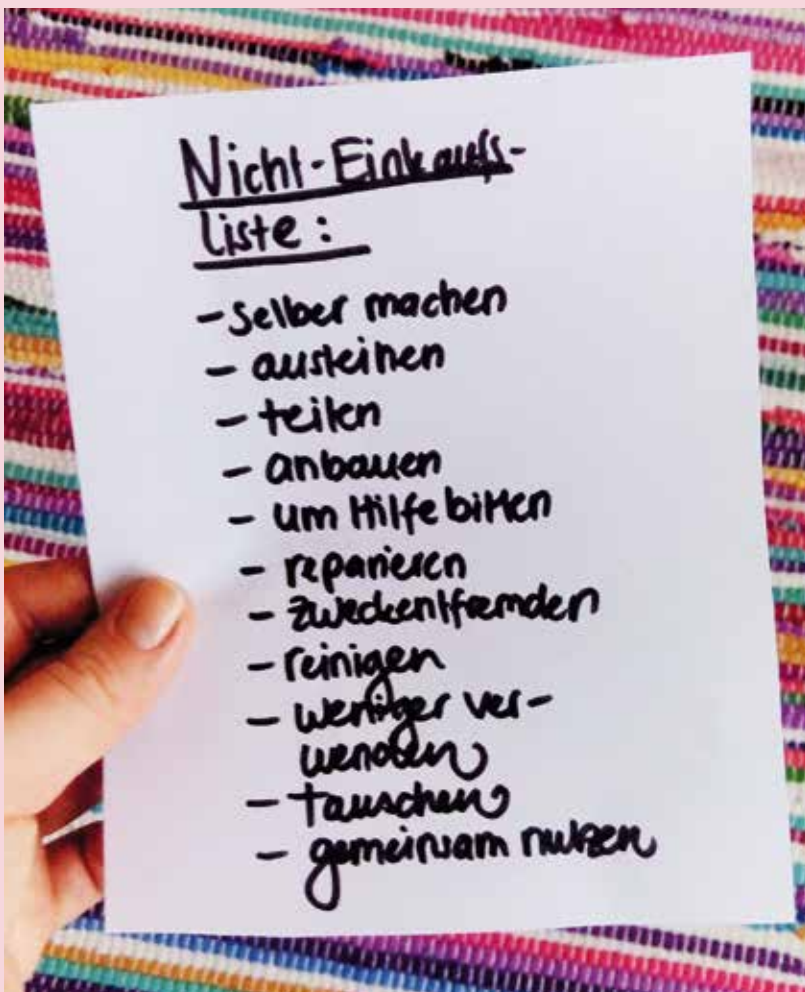 Nicht-Einkaufs-
liste:
- selber machen
- ausleihen
- teilen
- anbauen
- um Hilfe bitten
- reparieren
- zweckentfremden
- reinigen
- weniger ver-
wenden
- tauschen
- gemeinsam nutzen